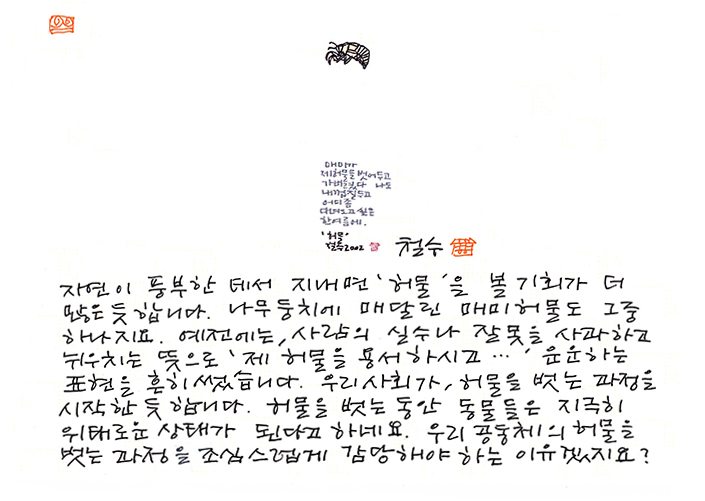 매미가
제허물을벗어두고
가버렸다 나도
내껍질두고
어디좀
다녀오고싶은
한여름에.
'허물'
철수2002
철수
자연이 풍부한 데서 지내면 '허물'을 볼 기회가 더
많은듯 합니다. 나무둥치에 매달린 매미허물도 그중
하나지요. 예전에는, 사람의 실수나 잘못을 사과하고
뉘우치는 뜻으로 '제 허물을 용서하시고 …' 운운하는
표현을 흔히 썼습니다. 우리사회가, 허물을 벗는 과정을
시작한 듯 합니다. 허물을 벗는 동안 동물들은 지극히
위태로운 상태가 된다고 하네요. 우리 공동체의 허물을
벗는 과정을 조심스럽게 감당해야 하는 이유겠지요?